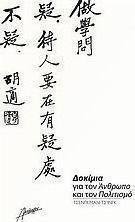 做學問
疑．待人要在有疑處
不疑．
胡適
Δοκίμια
για τον Άνθρωπο
και τον Πολιτισμό